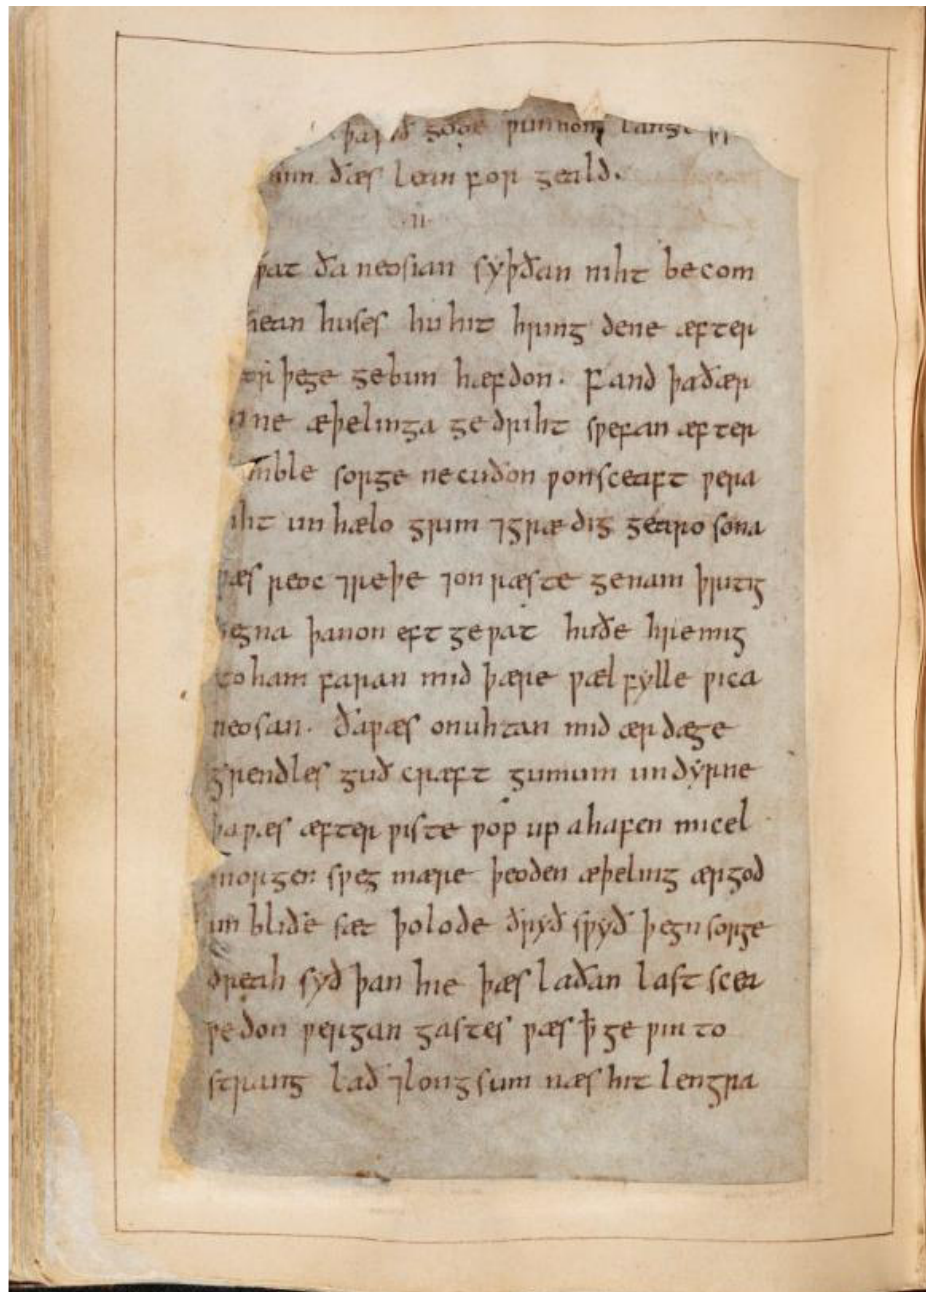 þa ƿið gode ƿunnon lange
him ðæs lean for geald.
·ii·
ƿat ða neosian syþðan niht becom
hean huses hu hit hring dene æfter
þege gebun hæfdon. Fand þa ðær
ne æþelinga ge driht sƿefan æfter
mble sorge ne cuðon ƿonsceaft ƿera
iht un hælo grim ⁊ græ dig gearo sona
ƿæs reoc ⁊ reþe ⁊ on ræste genam þritig
egna þanon eft geƿat huðe hremig
to ham faran mid þære ƿæl fylle ƿica
neosan. ða ƿæs on uhtan mid ær dæge
grendles guð cræft gumum un dyrne
þa ƿæs æfter ƿiste ƿop up ahafen micel
morgen sƿeg mære þeoden æþeling ærgod
un bliðe sæt þolode ðryð sƿyð þegn sorge
dreah syð þan hie þæs laðan last scea
ƿe don ƿergan gastes ƿæs ꝥ ge ƿin to
strang lað ⁊ long sum næs hit lengra